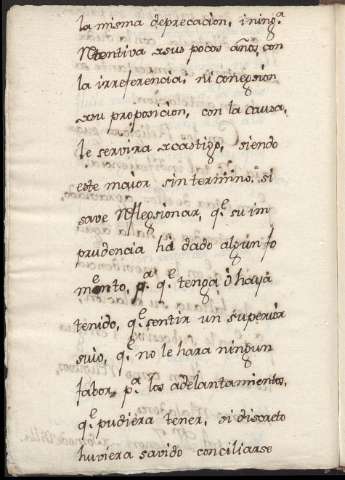 la misma deprecacion, i ning.ª
Rtentiva asus pocos años, con
la irreferencia, ni conegsion
asu proposicion, con la causa,
le servira acastigo, siendo
este maior sin termino, si
save Reflegsionar, q.e su im
prudencia há dado algun fo
mento, p.ª q.e tenga ó haya
tenido, q.e sentir un superior
suio, q.e no le hara ningun
fabor, p.ª los adelantamientos,
q.e pudiera tener, si discreto
huviera savido conciliarse